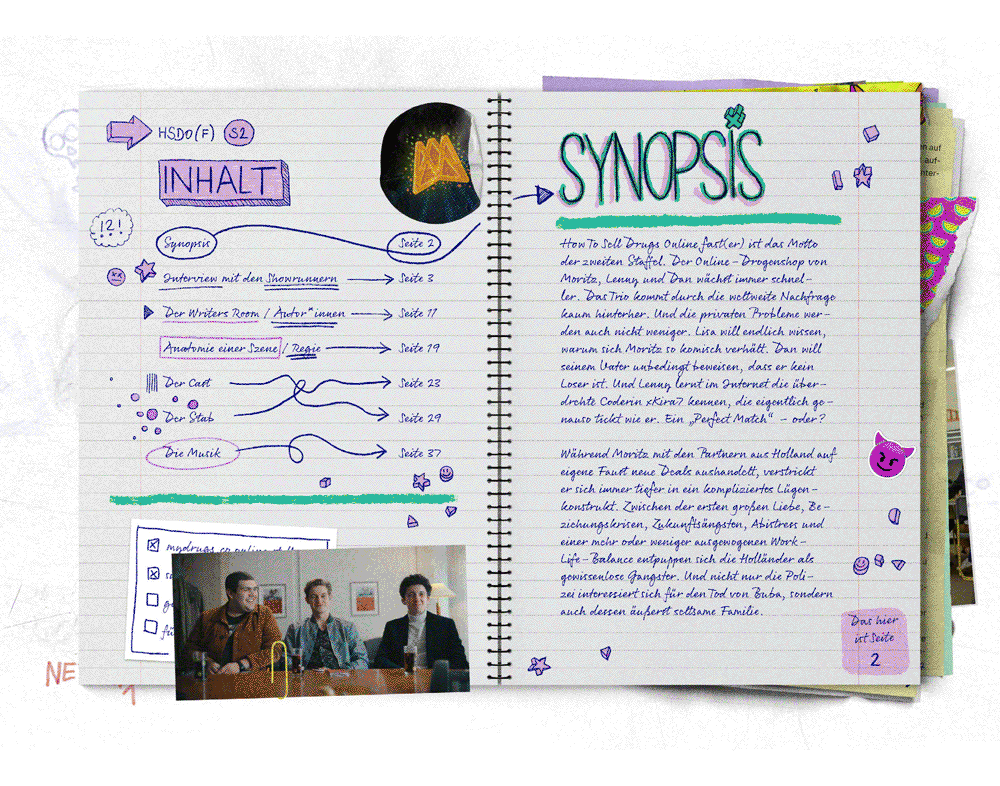 HSDO(F) S2
INHALT
!?!
Synopsis Seite 2
Interview mit den Showrunnern Seite 3
Der Writers Room / Autor*innen Seite 11
Anatomie einer Szene / Regie Seite 19
Der Cast Seite 23
Der Stab Seite 29
Die Musik Seite 37
mydrugs.co online
NE
SYNOPSIS
How To Sell Drugs Online fast(er) ist das Motto
der zweiten Staffel. Der Online-Drogenshop von
Moritz, Lenny und Dan wächst immer schnel-
ler. Das Trio kommt durch die weltweite Nachfrage
kaum hinterher. Und die privaten Probleme wer-
den auch nicht weniger. Lisa will endlich wissen,
warum sich Moritz so komisch verhält. Dan will
seinem Vater unbedingt beweisen, dass er kein
Loser ist. Und Lenny lernt im Internet die über-
drehte Coderin xKira7 kennen, die eigentlich ge-
nauso tickt wie er. Ein „Perfect Match“ – oder?
Während Moritz mit den Partnern aus Holland auf
eigene Faust neue Deals aushandelt, verstrickt
er sich immer tiefer in ein kompliziertes Lügen-
konstrukt. Zwischen der ersten großen Liebe, Be-
ziehungskrisen, Zukunftsängsten, Abistress und
einer mehr oder weniger ausgewogenen Work-
Life-Balance entpuppen sich die Holländer als
gewissenlose Gangster. Und nicht nur die Poli-
zei interessiert sich für den Tod von Buba, sondern
auch dessen äußerst seltsame Familie.
Das hier
ist Seite
2
auf
auf-